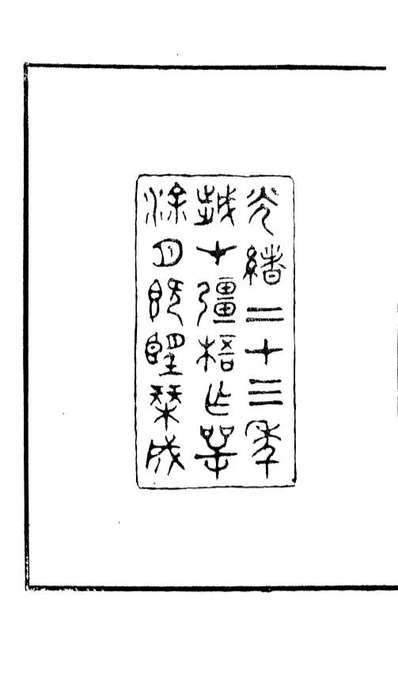 光緒二十三年
歲才彊梧乍噩
涂月既望栞成